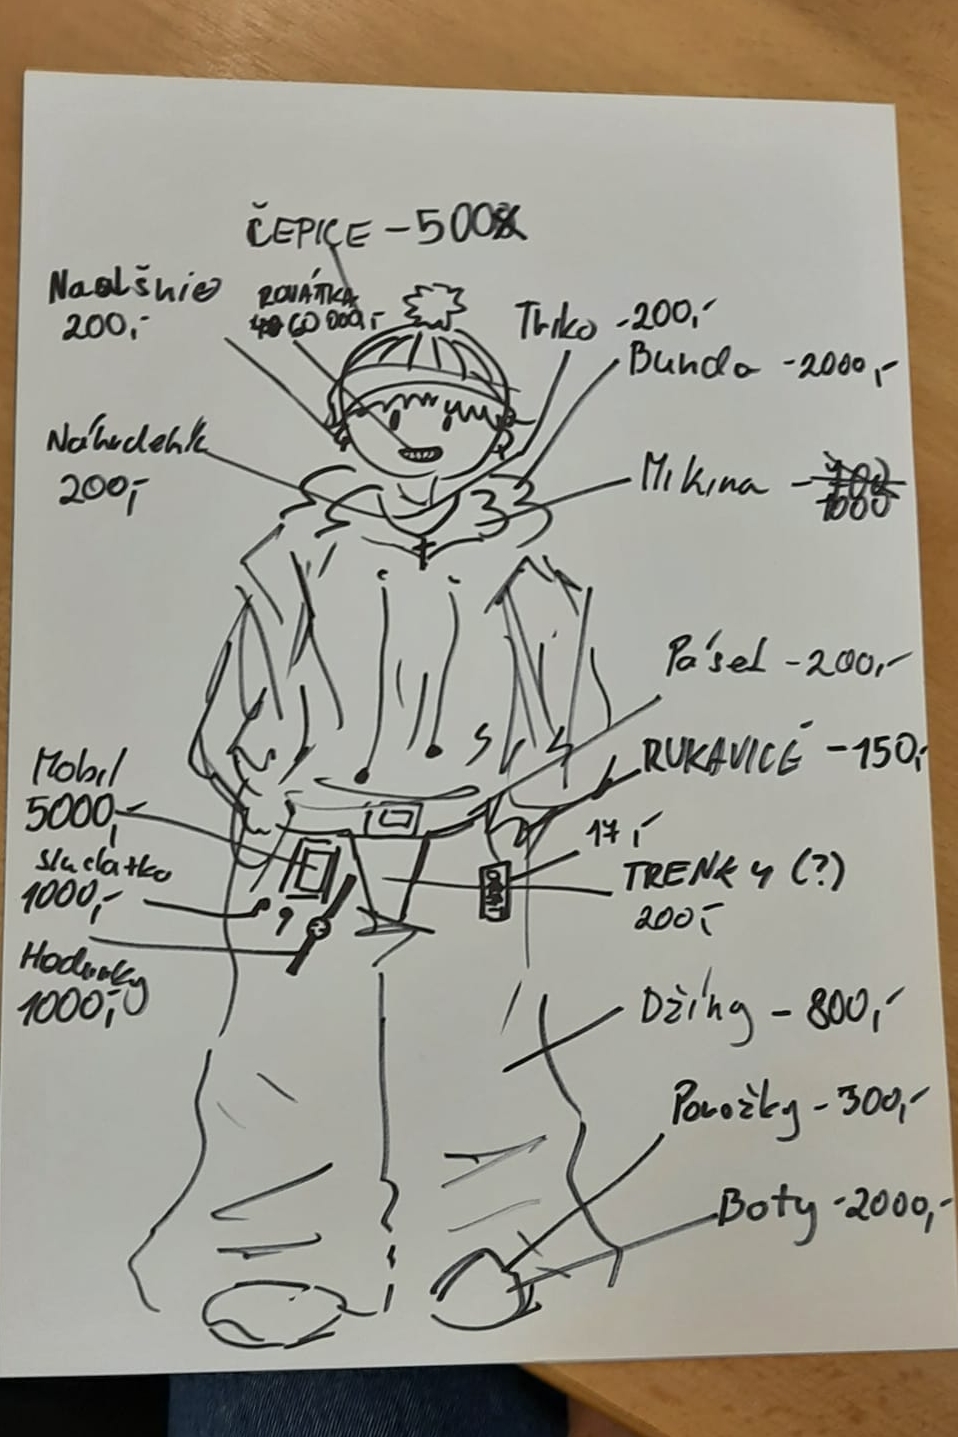 ČEPICE - 500
Naušnice
200,-
ROVÁTKA
60 000,-
Triko - 200,-
Bunda - 2000,-
Náhrdelník
200,-
Mikina - 1000
Pásek - 200,-
RUKAVICE - 150,-
Mobil
5000,-
17,-
sluchátko
1000,-
TRENKY (?)
200,-
Hodinky
1000,-
Džíny - 800,-
Ponožky - 300,-
Boty - 2000,-